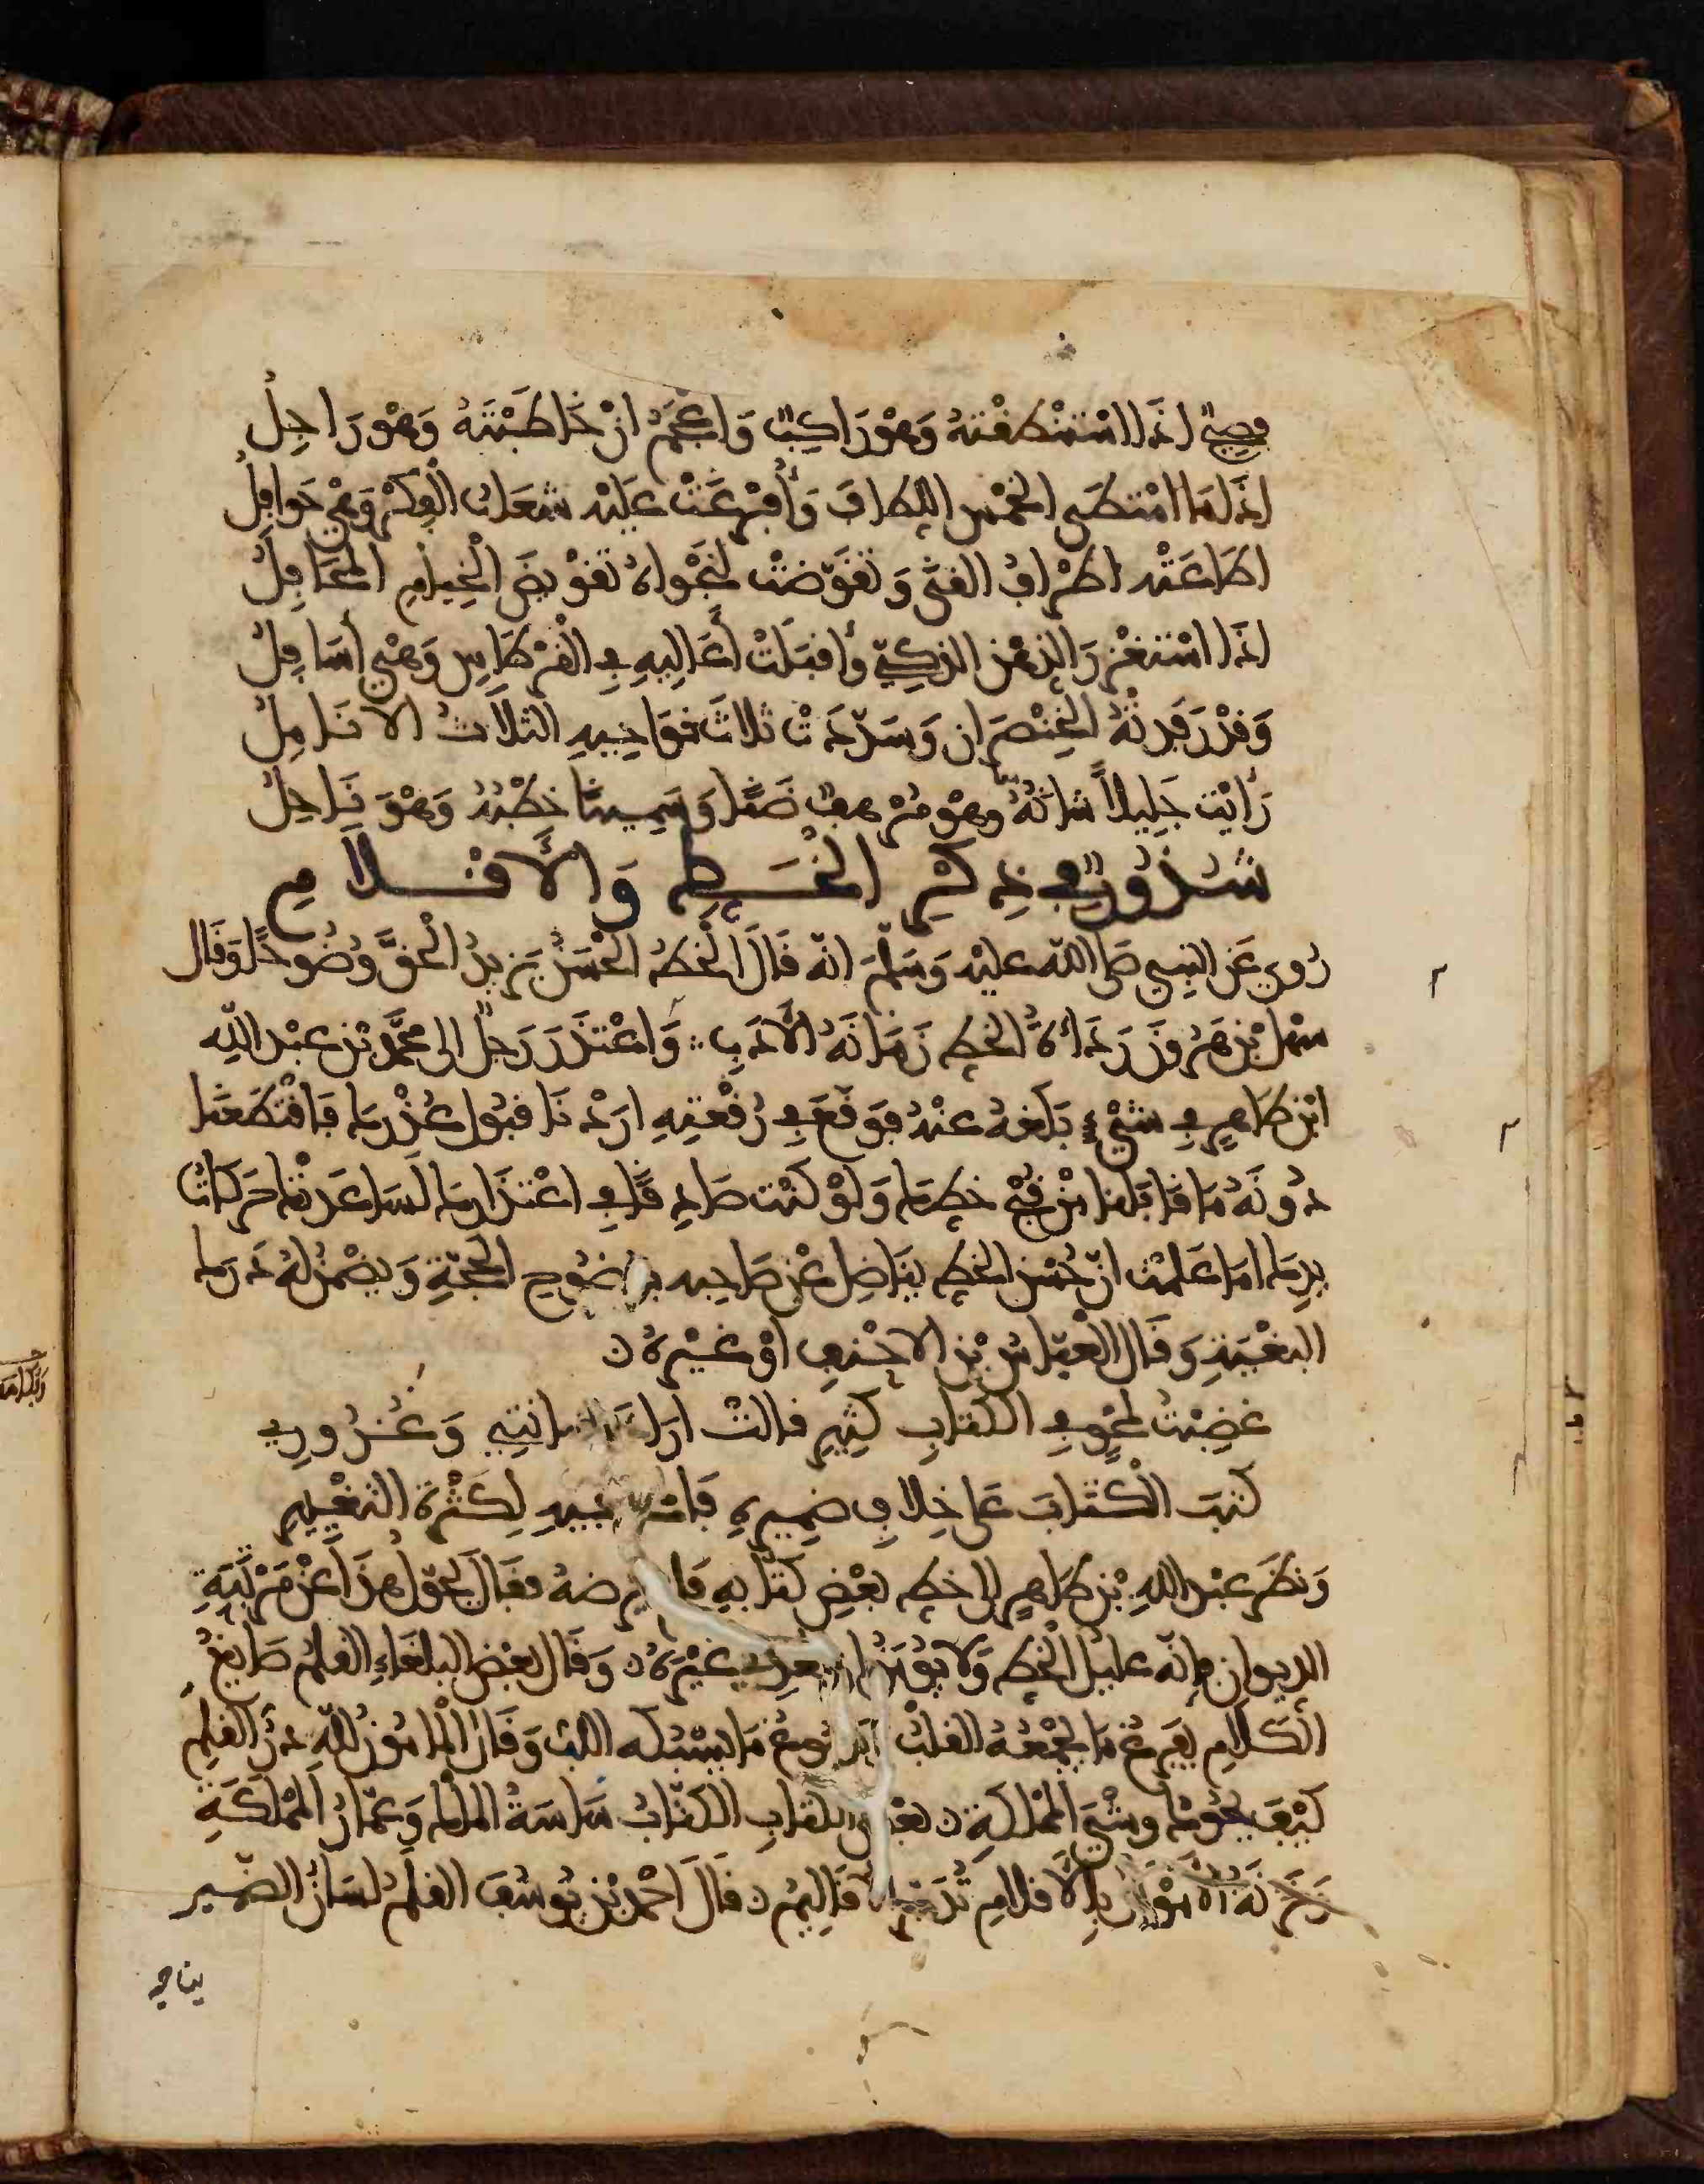 فصيحٌ اذا استنطقتهُ وَهْوَ رَاكبٌ وَاعْجَمُ ان خَاطَبْتَهُ وَهْوَ رَاجِلُ
اذا مَا امْتطَى الخمْس اللطافَ وَأُفْرِغَتْ عليْه شعَابُ الْفِكْرِ وَهْيَ حَوافِلُ
اطَاعَتْه اطْرافُ القنَى وَتقوّضتْ لنَجْواهُ تَقْوِيضَ الْخِيَامِ الْجَحَافِلُ
اذا اسْتغْزرَ الذهْن الذكيّ وأقبَلَتْ أعَالِيهِ فِي القِرْطَاسِ وَهْيَ أسَافِلُ
وَقدْ رَفدتْهُ الخِنْصَرانِ وَسَدّدَتْ ثلاثَ نوَاحِيهِ الثلاثُ الانَامِلُ
رَأيْت جَلِيلاً شأنُهُ وهْوَ مُرْهفٌ ضَنًا وَسَمِينًا خطْبُهُ وَهْوَ نَاحِلُ
شذورٌ فِي ذِكْرِ الخَطِّ وَالأَقْلاَمِ
رُوِي عَن النبِي صلى الله عليْه وَسَلّمَ انّه قالَ الْخطُّ الحْسَنُ يَزِيدُ الْحقَّ وُضُوحًا وَقَال
سَهْل بْن هَرُونَ رَدَاءَةُ الخطِّ زمَانَةُ الأَدَبِ وَاعْتذَرَ رَجلٌ الى محمَّد بْن عبْد اللهِ
ابْن طاهِرٍ فِي شيْءٍ بَلَغهُ عنْهُ فوَقّعَ فِي رُقْعتِهِ ارَدْنَا قبُول عُذْرِكَ فاقْتَطَعَنَا
دُونَهُ مَا قَابلنا مِنْ قُبْحِ خطِّكَ وَلوْ كنْت صَادِقًا فِي اعْتذَارِكَ لَسَاعَدَتْكَ حَرَكةُ
يدِكَ امَا عَلمْت انّ حُسْن الخطِّ يُنَاضِل عَنْ صَاحِبه بوُضُوحِ الحُجّةِ وَيضْمَنُ لهُ دَرَكَ
البُغْيَةِ وَقَالَ الْعبّاسُ بْن الاحْنفِ اوْ غيْرهُ
غضِبْتُ لمَحْوٍ فِي الكتَابِ كثِيرٍ قالتْ ارَادَ خيانتِي وَغُرُورِي
كتبَ الْكتَابَ عَلى خِلافِ ضمِيرِهِ لِكَثْرَةِ التغْيِيرِ
وَنظَرَ عبْد اللهِ بْن طاهِرٍ الى خطِّ بعْضِ كتّابِهِ فلم يرضهُ فقَالَ نحّوا هذَا عنْ مَرْتَبَةِ
الديوانِ فإنّه عليلُ الخطِّ وَلا يُؤْمَنُ ان يعْدِي غيْرَهُ وَقَال بعْض البلغَاءِ القلمُ صَايغُ
الْكلامِ يفرغُ مَا يجْمَعُهُ القلْبُ وَيَصُوغُ مَا يسْبِكُه اللُّبّ وَقَالَ الْمامُونُ للّهِ دَرُّ القلَمِ
كيْفَ يحُوكُ وشْيَ المْمْلكَةِ بعْض الكتابِ الكتّابُ سَاسَةُ الملكِ وَعمّارُ المْلَكَةِ
وَخَزَنَةُ الامْوَالِ بالأَقلامِ تُدَبَّرُ الأَقَالِيمُ قالَ احْمَد بْن يُوسُفَ القلَمُ لسَانُ الضّمِيرِ
يناجي